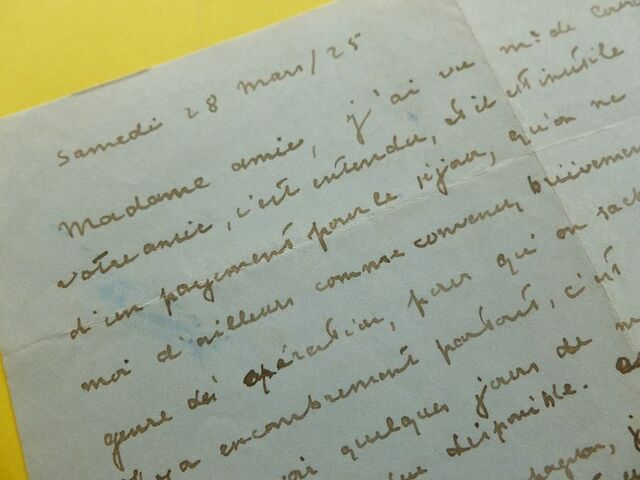 Samedi 28 mars/25
Madame amie, j'ai vu Mr de
votre amie, c'est entendu, et il est inutile
d'un payement pour le séjour, qu'on ne
moi d'ailleurs comme convenu, brièvement
genre des opération, pour qu'on sach
a encombrement partout, c'est
quelques jours de
disponible.